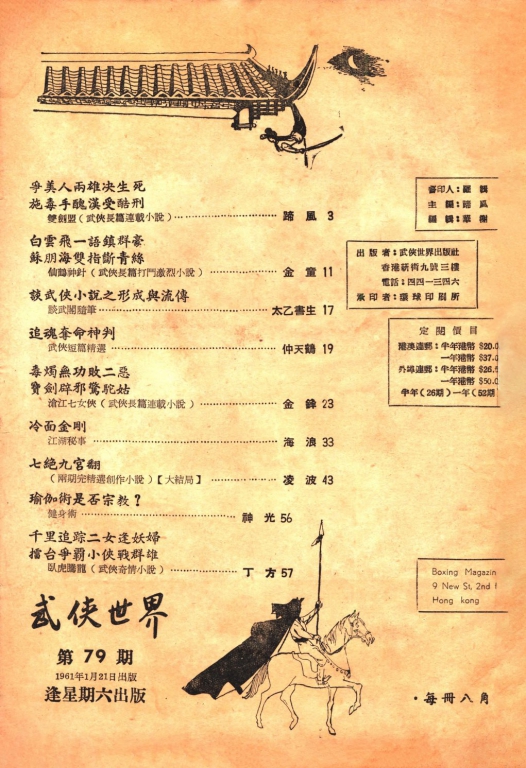 爭美人兩雄决生死
施毒手醜漢受酷刑
雙劍盟（武俠長篇連載小說）………蹄風 3
白雲飛一語鎮群豪
蘇朋海雙指斷青絲
仙鶴神針（武俠長篇打鬥激烈小說）………金童 11
談武俠小說之形成與流傳
談武閣隨筆………太乙書生 17
追魂奪命神判
武俠短篇精選………仲天鶴 19
毒燭無功敗二惡
寶劍辟邪驚駝姑
滄江七女俠（武俠長篇連載小說）………金鋒 23
冷面金剛
江湖秘事………海浪 33
七絕九宮翻
（兩期完精選創作小說）【大結局】………凌波 43
瑜伽術是否宗教？
健身術………神光 56
千里追踪二女逢妖婦
擂台爭霸小俠戰群雄
臥虎騰龍（武俠奇情小說）………丁方 57
督印人：羅
主編：蹄風
編輯：
出版者：武俠世界出版社
香港新街九號三樓
電話：四四一三四六
承印者：環球印刷所
定閱價目
港澳連郵：半年港幣 $20.0
一年港幣 $37.0
外埠連郵：半年港幣 $26.
一年港幣 $50.0
半年（26期）一年（52期
Boxing Magazin
9 New St, 2nd
Hong kong
武俠世界
第 79 期
1961年1月21日出版
逢星期六出版
・每冊八角